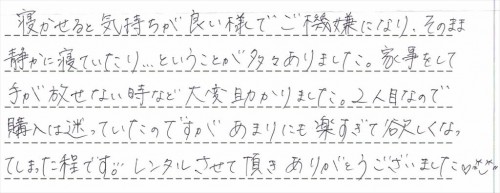 寝かせると気持ちが良い様でご機嫌になり、そのまま
静かに寝ていたり…ということが多々ありました。家事をして
手が放せない時など大変助かりました。2人目なので
購入は迷っていたのですが あまりにも楽すぎて欲しくなっ
てしまった程です!! レンタルさせて頂き ありがとうございました